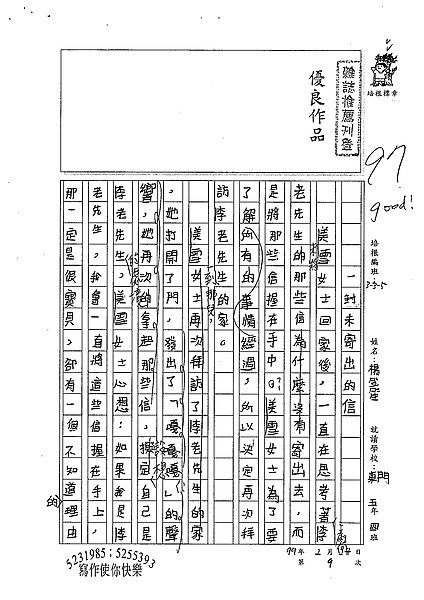 雜誌推薦刊登
優良作品
培根標章
97
good!
培根編班：3-3-5
姓名：楊
就讀學校：東門
五年四班
99年2月
日
第9次
一封未寄出的信
美雪女士回家後，一直在思考著李
老先生的那些信為什麼沒有寄出去，而
是將那些信握在手中？美雪女士為了要
了解所有的事情經過，所以決定再次拜
訪李老先生的家。
美雪女士再次拜訪了李老先生的家
，她打開了門，發出了「嘎嘎嘎」的聲
響，她再次的拿起那些信，探定自己是
李老先生，美雪女士心想：如果我是李
老先生，我會一直將這些信握在手上，
那一定是很寶貝，卻有一個不知道理由
的
5231985；5255393
寫作使你快樂